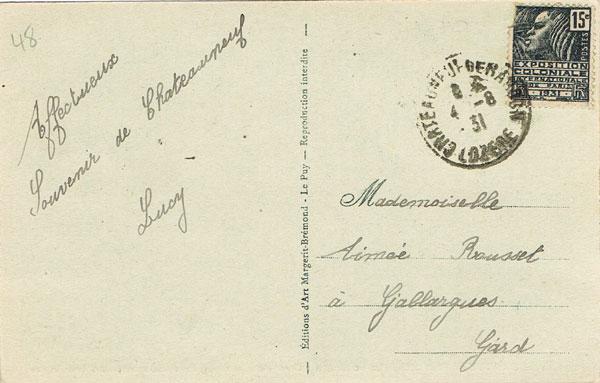 48
Affectueux
Souvenir de Chateauneuf
Lucy
Éditions d'Art Margerit-Brémond - Le Puy — Reproduction interdite —
15c
POSTES
EXPOSITION
COLONIALE
INTERNATIONALE
PARIS 1931
CHATEAUNEUF DE RANDON
8
4 -8
31
LOZERE
Mademoiselle
Aimée Rousset
à Gallargues
Gard